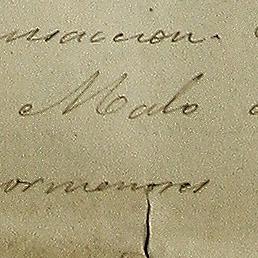 nsaccion.
Malo
ormenores